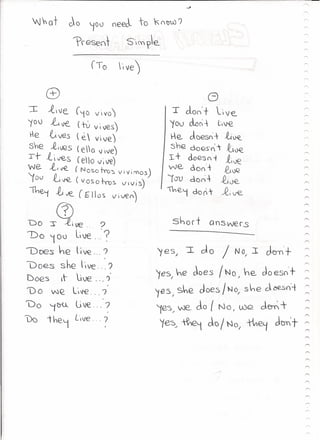 What do you need to know?
Present Simple
(To live)
+
I live (yo vivo)
you live (tú vives)
He lives (él vive)
She lives (ella vive)
It lives (ello vive)
We live (Nosotros vivimos)
You live (vosotros vivís)
They live (Ellos viven)
-
I don't live
you don't live
He doesn't live
She doesn't live
It doesn't live
we don't live
You don't live
They don't live
?
Do I live ...?
Do you live...?
Does he live...?
Does she live...?
Does it live...?
Do we live...?
Do you live...?
Do they live...?
Short answers
Yes, I do / No, I don't
yes, he does / No, he doesn't
yes, she does / No, she doesn't
yes, we do / No, we don't
Yes, they do / No, they don't